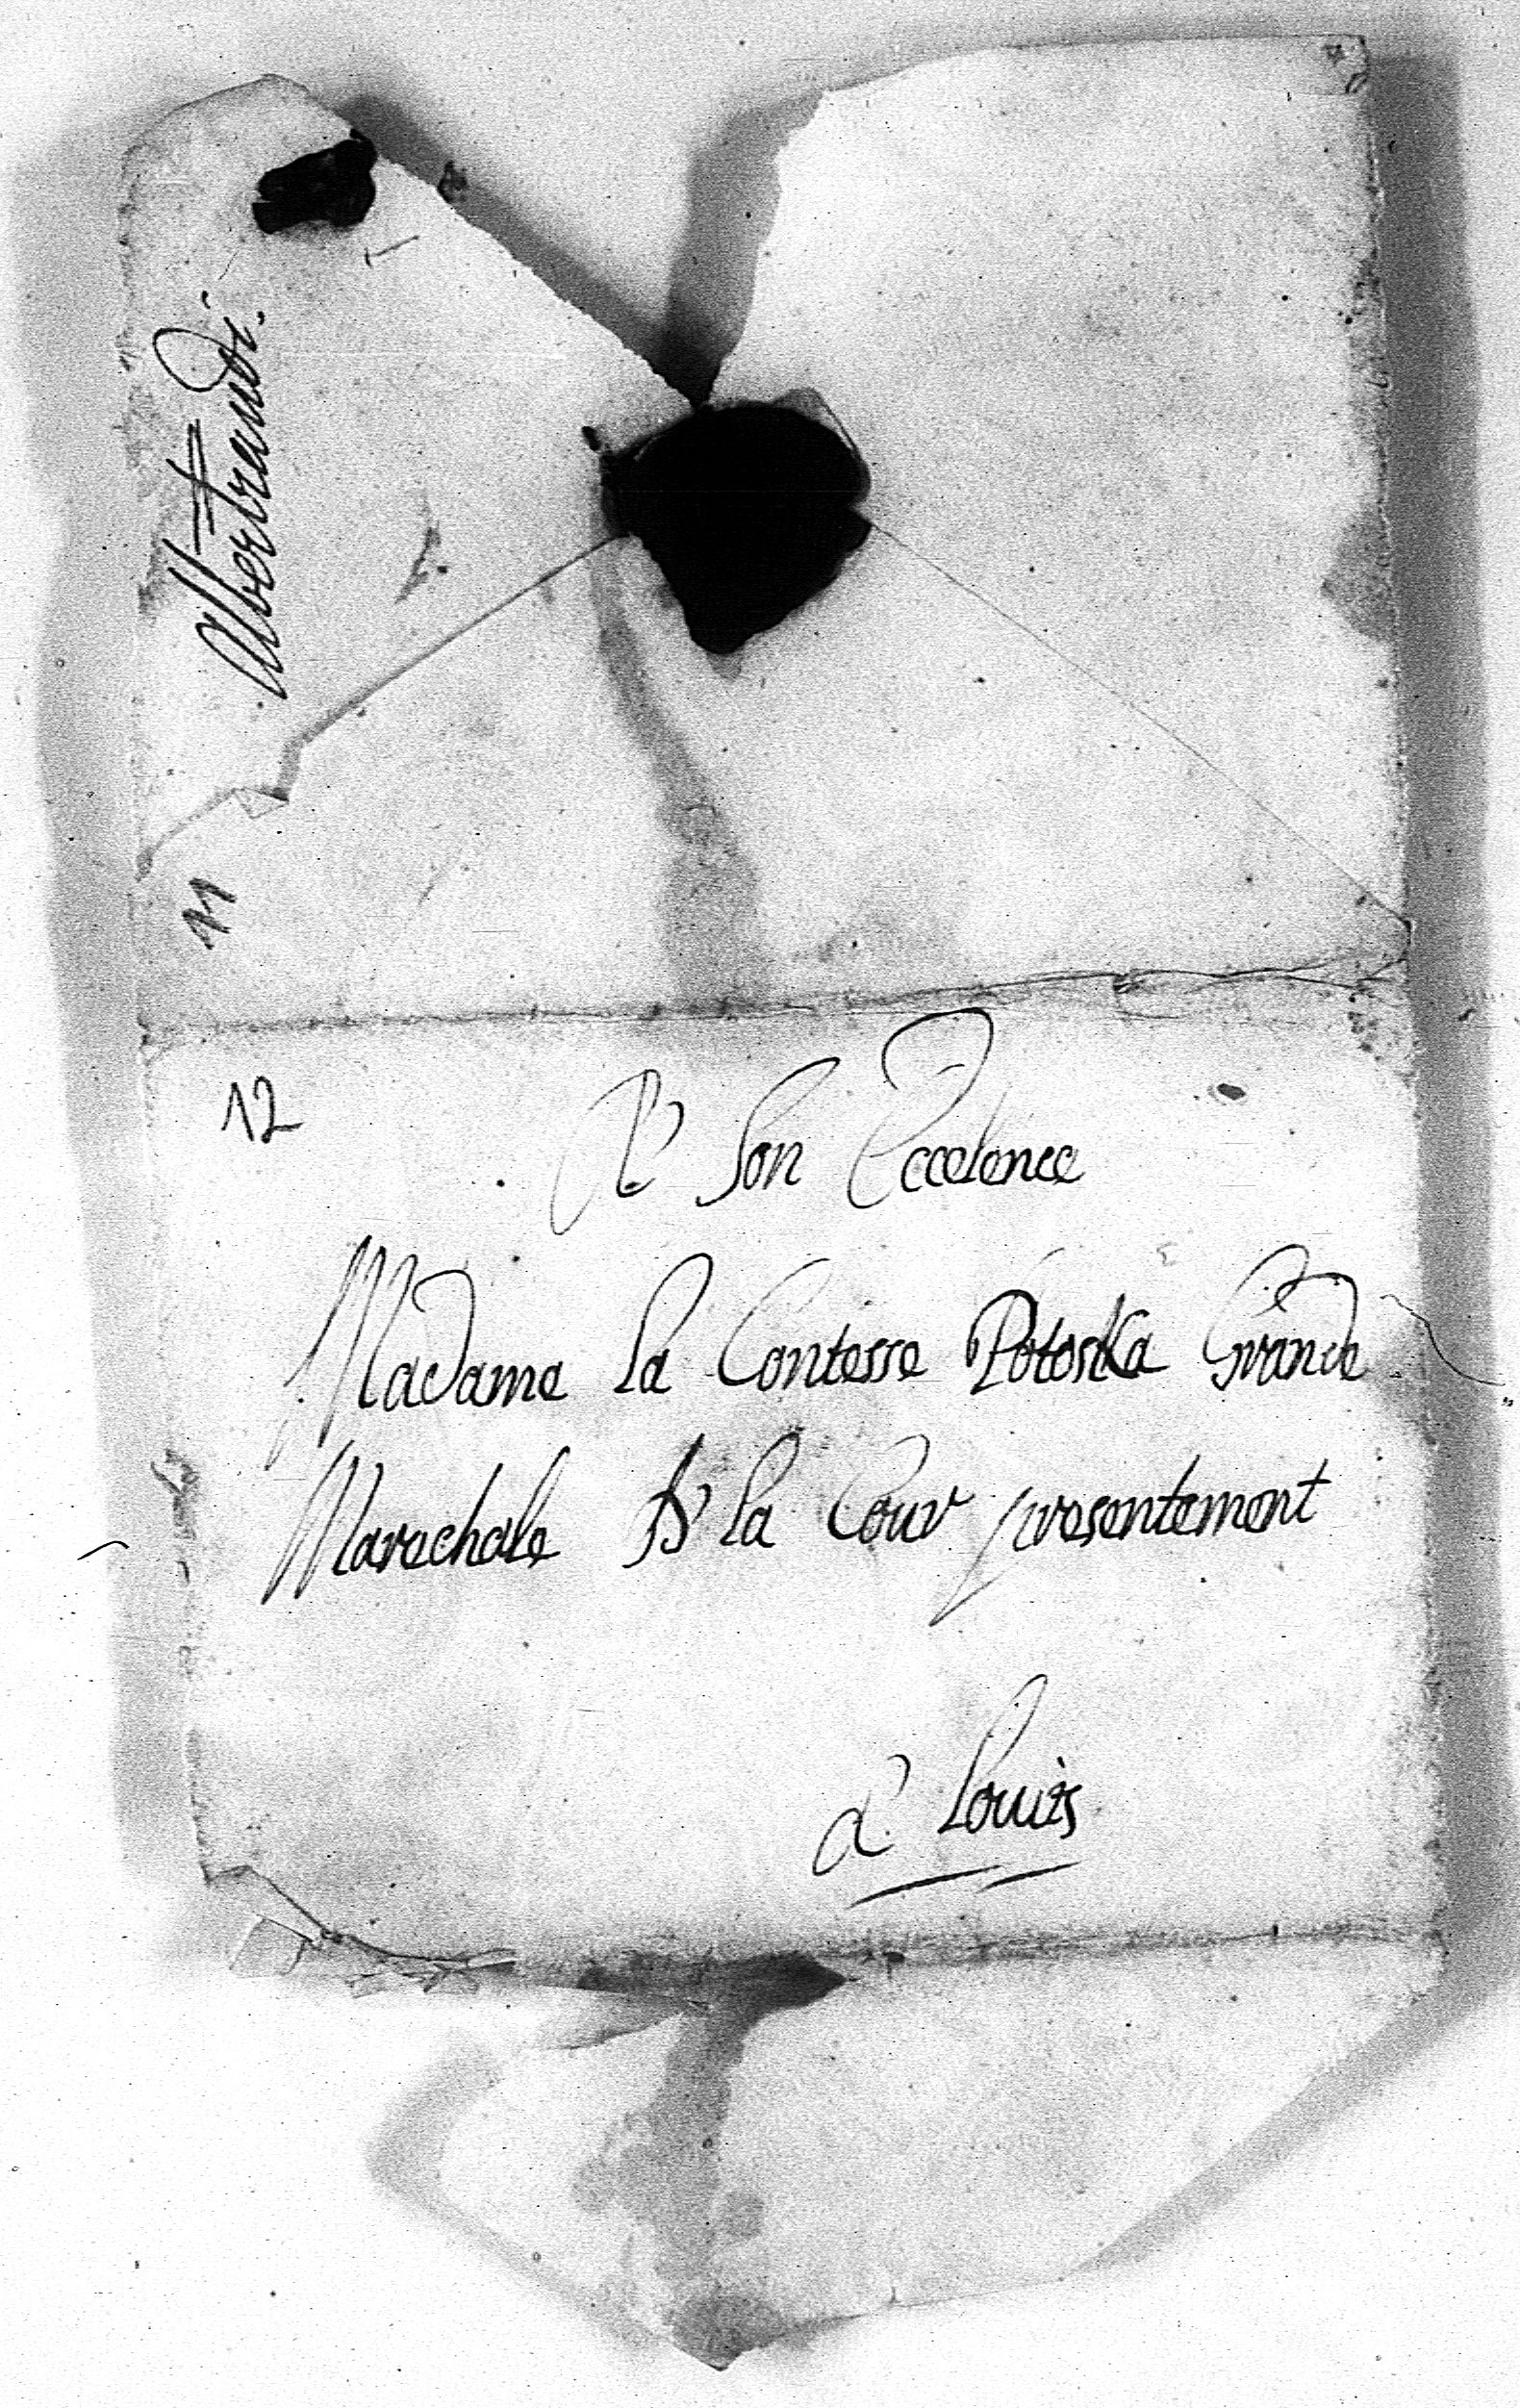 Albertrandi.
11
12
A Son Eccelence
Madame La Contesse Potoska Grande
Marechale A la Cour presentement
a Louis